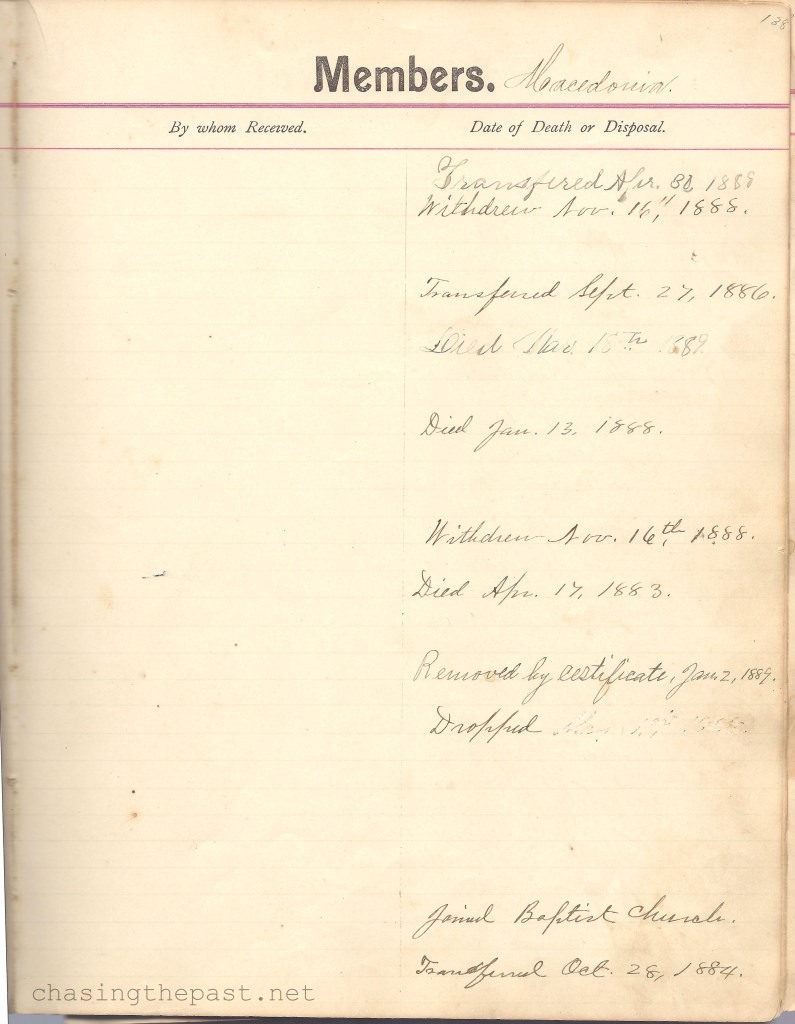 138
Members. Macedonia.
By whom Received. Date of Death or Disposal.
Transfered Apr. 30, 1888
Withdrew Nov. 16", 1888.
Transferred Sept. 27, 1886.
Died Nov. 18th 1889
Died Jan. 13, 1888.
Withdrew Nov. 16th, 1888.
Died Apr. 17, 1883.
Removed by certificate, Jan. 2, 1889.
Dropped
Joined Baptist Church.
Transferred Oct. 28, 1884.
chasingthepast.net